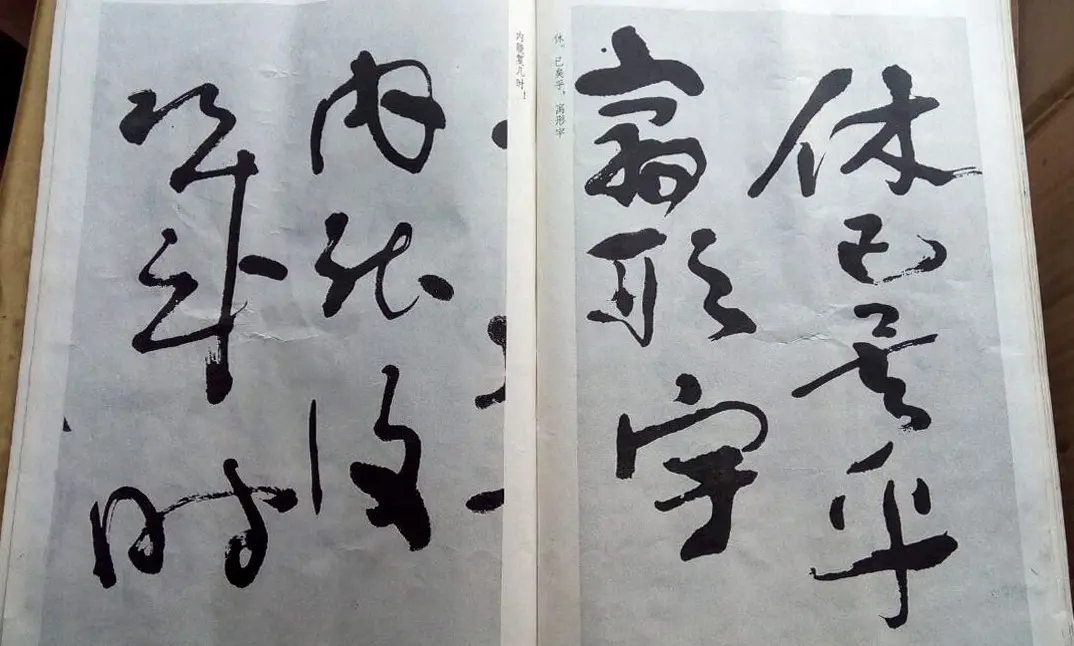 休已矣乎
寓形宇
休。已矣乎,寓形宇
内能复几时!
内能復
幾時